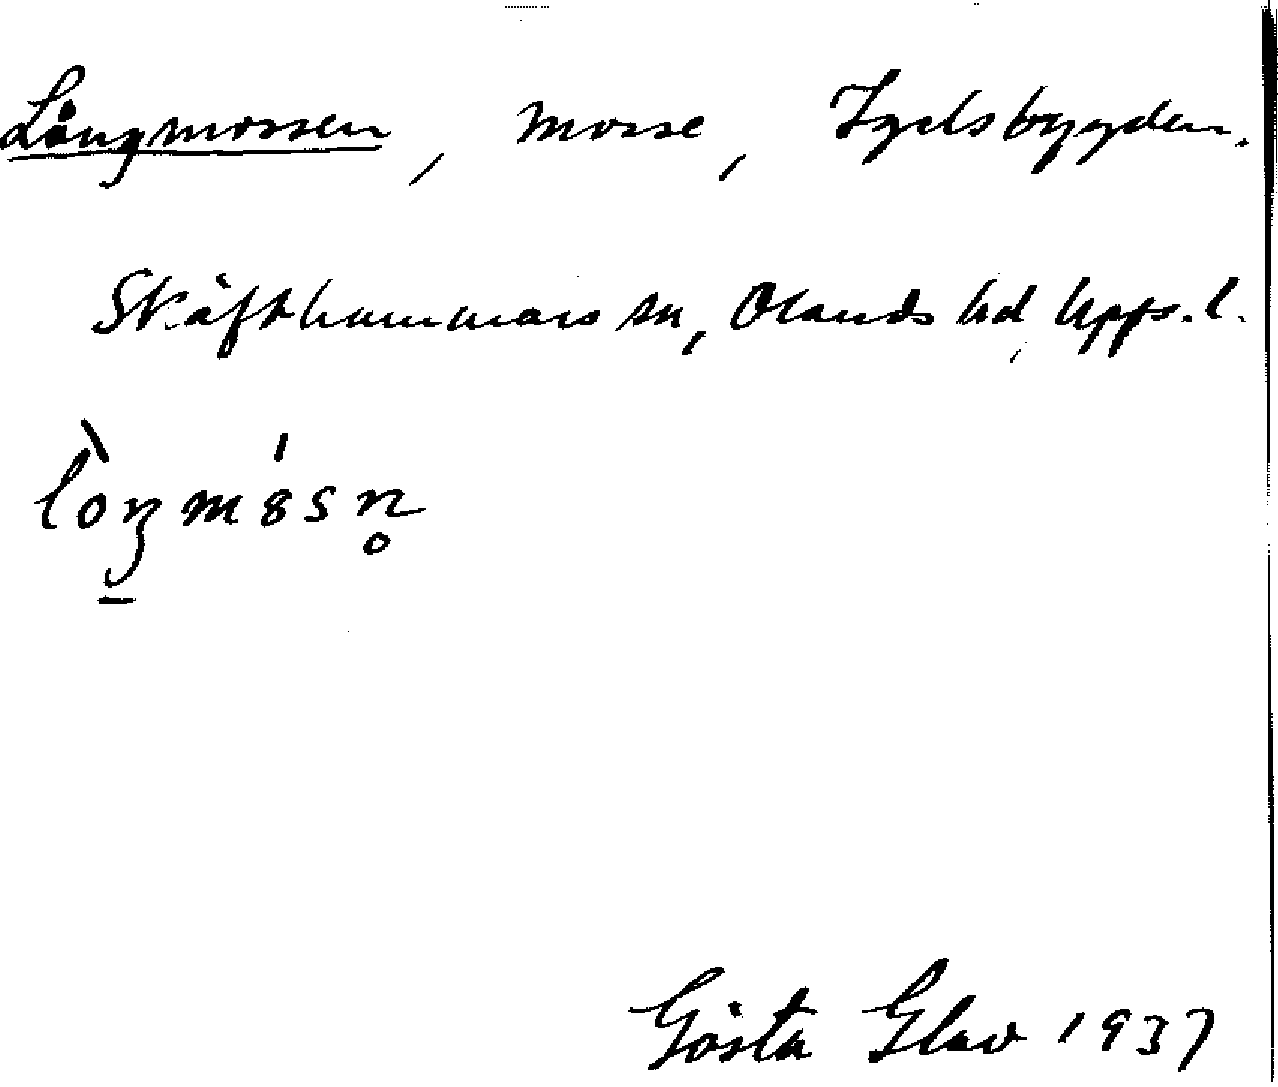 Långmossen, mosse, Igelsbygden.
Skäfthammars sn, Olands hd, Upps. l.
lòŋmȣ́sn̥
Gösta Glav 1937